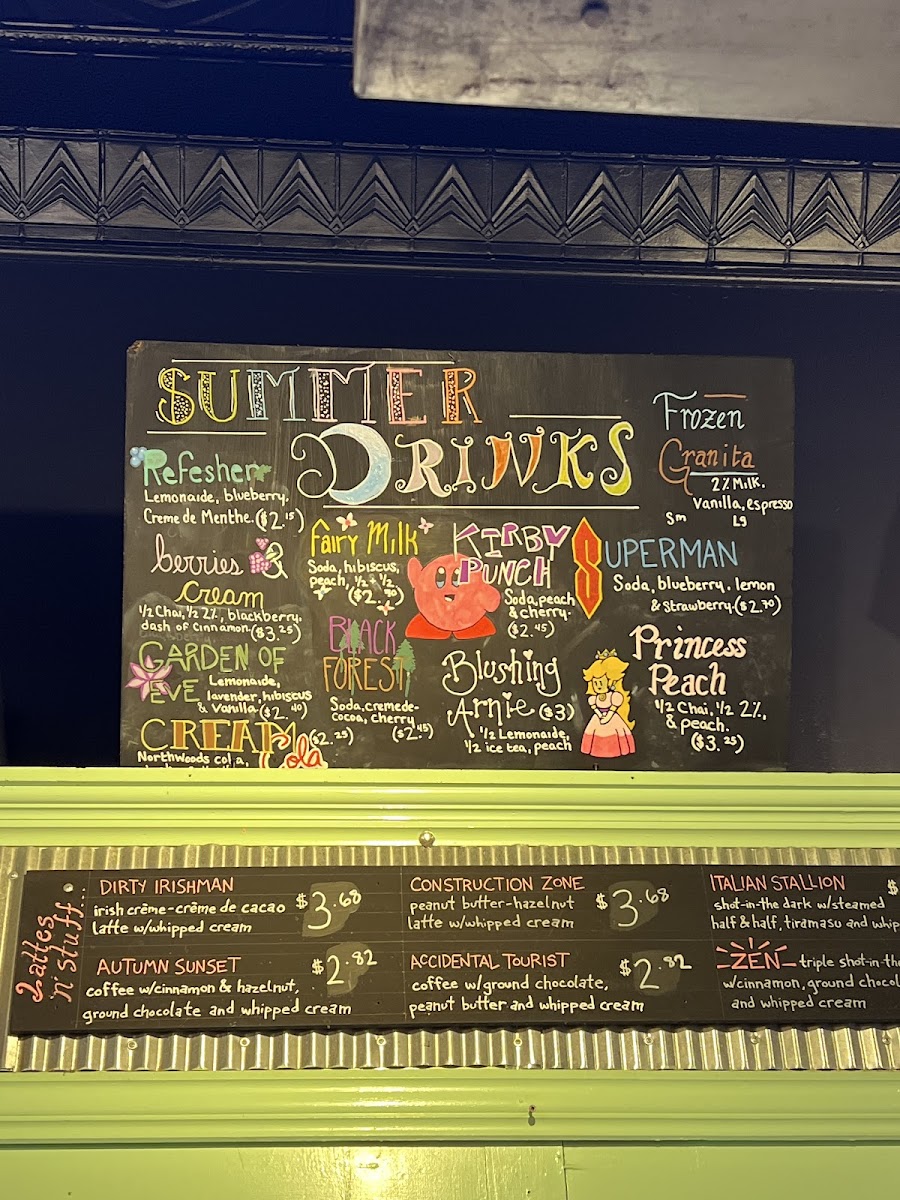 SUMMER
DRINKS
Refesher
Lemonaide, blueberry,
Creme de Menthe. ($2.15)
berries &
Cream
1/2 Chai, 1/2 2%, blackberry,
dash of Cinnamon. ($3.25)
GARDEN OF
EVE
Lemonaide,
lavender, hibiscus
& Vanilla. ($2.40)
CREAM
Cola
($2.25)
Northwoods cola,
Fairy Milk
Soda, hibiscus,
peach, 1/2 + 1/2
($2.90)
BLACK
FOREST
Soda, creme de-
Cocoa, cherry
($2.45)
KIRBY
PUNCH
Soda, peach
& cherry.
($2.45)
Blushing
Arnie ($3)
1/2 Lemonaide,
1/2 ice tea, peach
SUPERMAN
Soda, blueberry, lemon
& Strawberry. ($2.70)
Princess
Peach
1/2 Chai, 1/2 2%,
& peach.
($3.25)
Frozen
Granita
2% Milk.
Vanilla, espresso
Sm Lg
Lattes
'n' Stuff
DIRTY IRISHMAN
irish crème-crême de cacao
latte w/whipped cream
$3.68
AUTUMN SUNSET
coffee w/cinnamon & hazelnut,
ground chocolate and whipped cream
$2.82
CONSTRUCTION ZONE
peanut butter-hazelnut
latte w/whipped cream
$3.68
ACCIDENTAL TOURIST
coffee w/ground chocolate,
peanut butter and whipped cream
$2.82
ITALIAN STALLION
$
shot-in-the dark w/steamed
half & half, tiramasu and whip
ZEN triple shot-in-the
w/cinnamon, ground chocol
and whipped cream